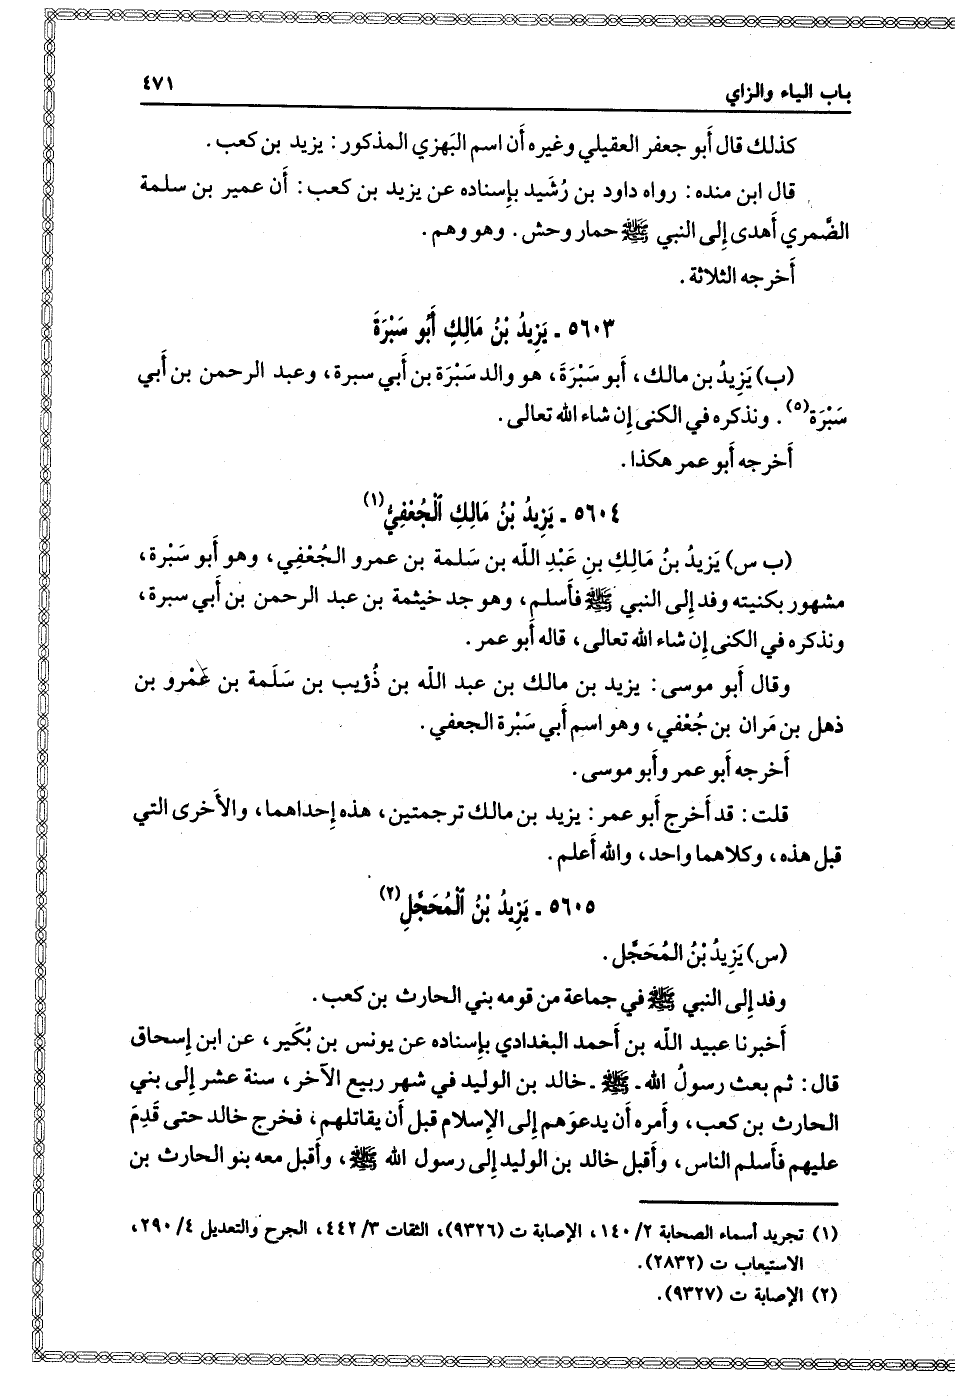 باب الياء والزاي
٤٧١
كذلك قال أبو جعفر العقيلي وغيره أن اسم البَهزي المذكور: يزيد بن كعب.
قال ابن منده: رواه داود بن رُشَيد بإسناده عن يزيد بن كعب: أن عمير بن سلمة
الضَّمري أهدى إلى النبي ﷺ حمار وحش. وهو وهم.
أخرجه الثلاثة.
٥٦٠٣ ـ يَزِيدُ بْنُ مَالِكٍ أَبُو سَبْرَةَ
(ب) يَزِيدُ بن مالك، أبو سَبْرَةَ، هو والد سَبْرَة بن أبي سبرة، وعبد الرحمن بن أبي
سَبْرَة(٥). ونذكره في الكنى إن شاء الله تعالى.
أخرجه أبو عمر هكذا.
٥٦٠٤ ـ يَزِيدُ بْنُ مَالِكِ ٱلْجُعْفِيُّ(١)
(ب س) يَزِيدُ بنُ مَالِكِ بنِ عَبْدِ اللّه بن سَلمة بن عمرو الجُعْفِي، وهو أبو سَبْرة،
مشهور بكنيته وفد إلى النبي ﷺ فأسلم، وهو جد خيثمة بن عبد الرحمن بن أبي سبرة،
ونذكره في الكنى إن شاء الله تعالى، قاله أبو عمر.
وقال أبو موسى: يزيد بن مالك بن عبد اللّه بن ذُؤيب بن سَلَمة بن عَمْرو بن
ذهل بن مَران بن جُعْفي، وهو اسم أبي سَبْرة الجعفي.
أخرجه أبو عمر وأبو موسى.
قلت: قد أخرج أبو عمر: يزيد بن مالك ترجمتين، هذه إحداهما، والأخرى التي
قبل هذه، وكلاهما واحد، والله أعلم.
٥٦٠٥ ـ يَزِيدُ بْنُ ٱلْمُحَجَّلِ(٢)
(س) يَزِيدُ بْنُ المُحَجَّل.
وفد إلى النبي ﷺ في جماعة من قومه بني الحارث بن كعب.
أخبرنا عبيد اللّه بن أحمد البغدادي بإسناده عن يونس بن بُكَير، عن ابن إسحاق
قال: ثم بعث رسولُ الله ـ ﷺ ـ خالد بن الوليد في شهر ربيع الآخر، سنة عشر إلى بني
الحارث بن كعب، وأمره أن يدعوَهم إلى الإسلام قبل أن يقاتلهم، فخرج خالد حتى قَدِمَ
عليهم فأسلم الناس، وأقبل خالد بن الوليد إلى رسول الله ﷺ، وأقبل معه بنو الحارث بن
(١) تجريد أسماء الصحابة ١٤٠/٢، الإصابة ت (٩٣٢٦)، الثقات ٤٤٢/٣، الجرح والتعديل ٢٩٠/٤،
الاستيعاب ت (٢٨٣٢).
(٢) الإصابة ت (٩٣٢٧).